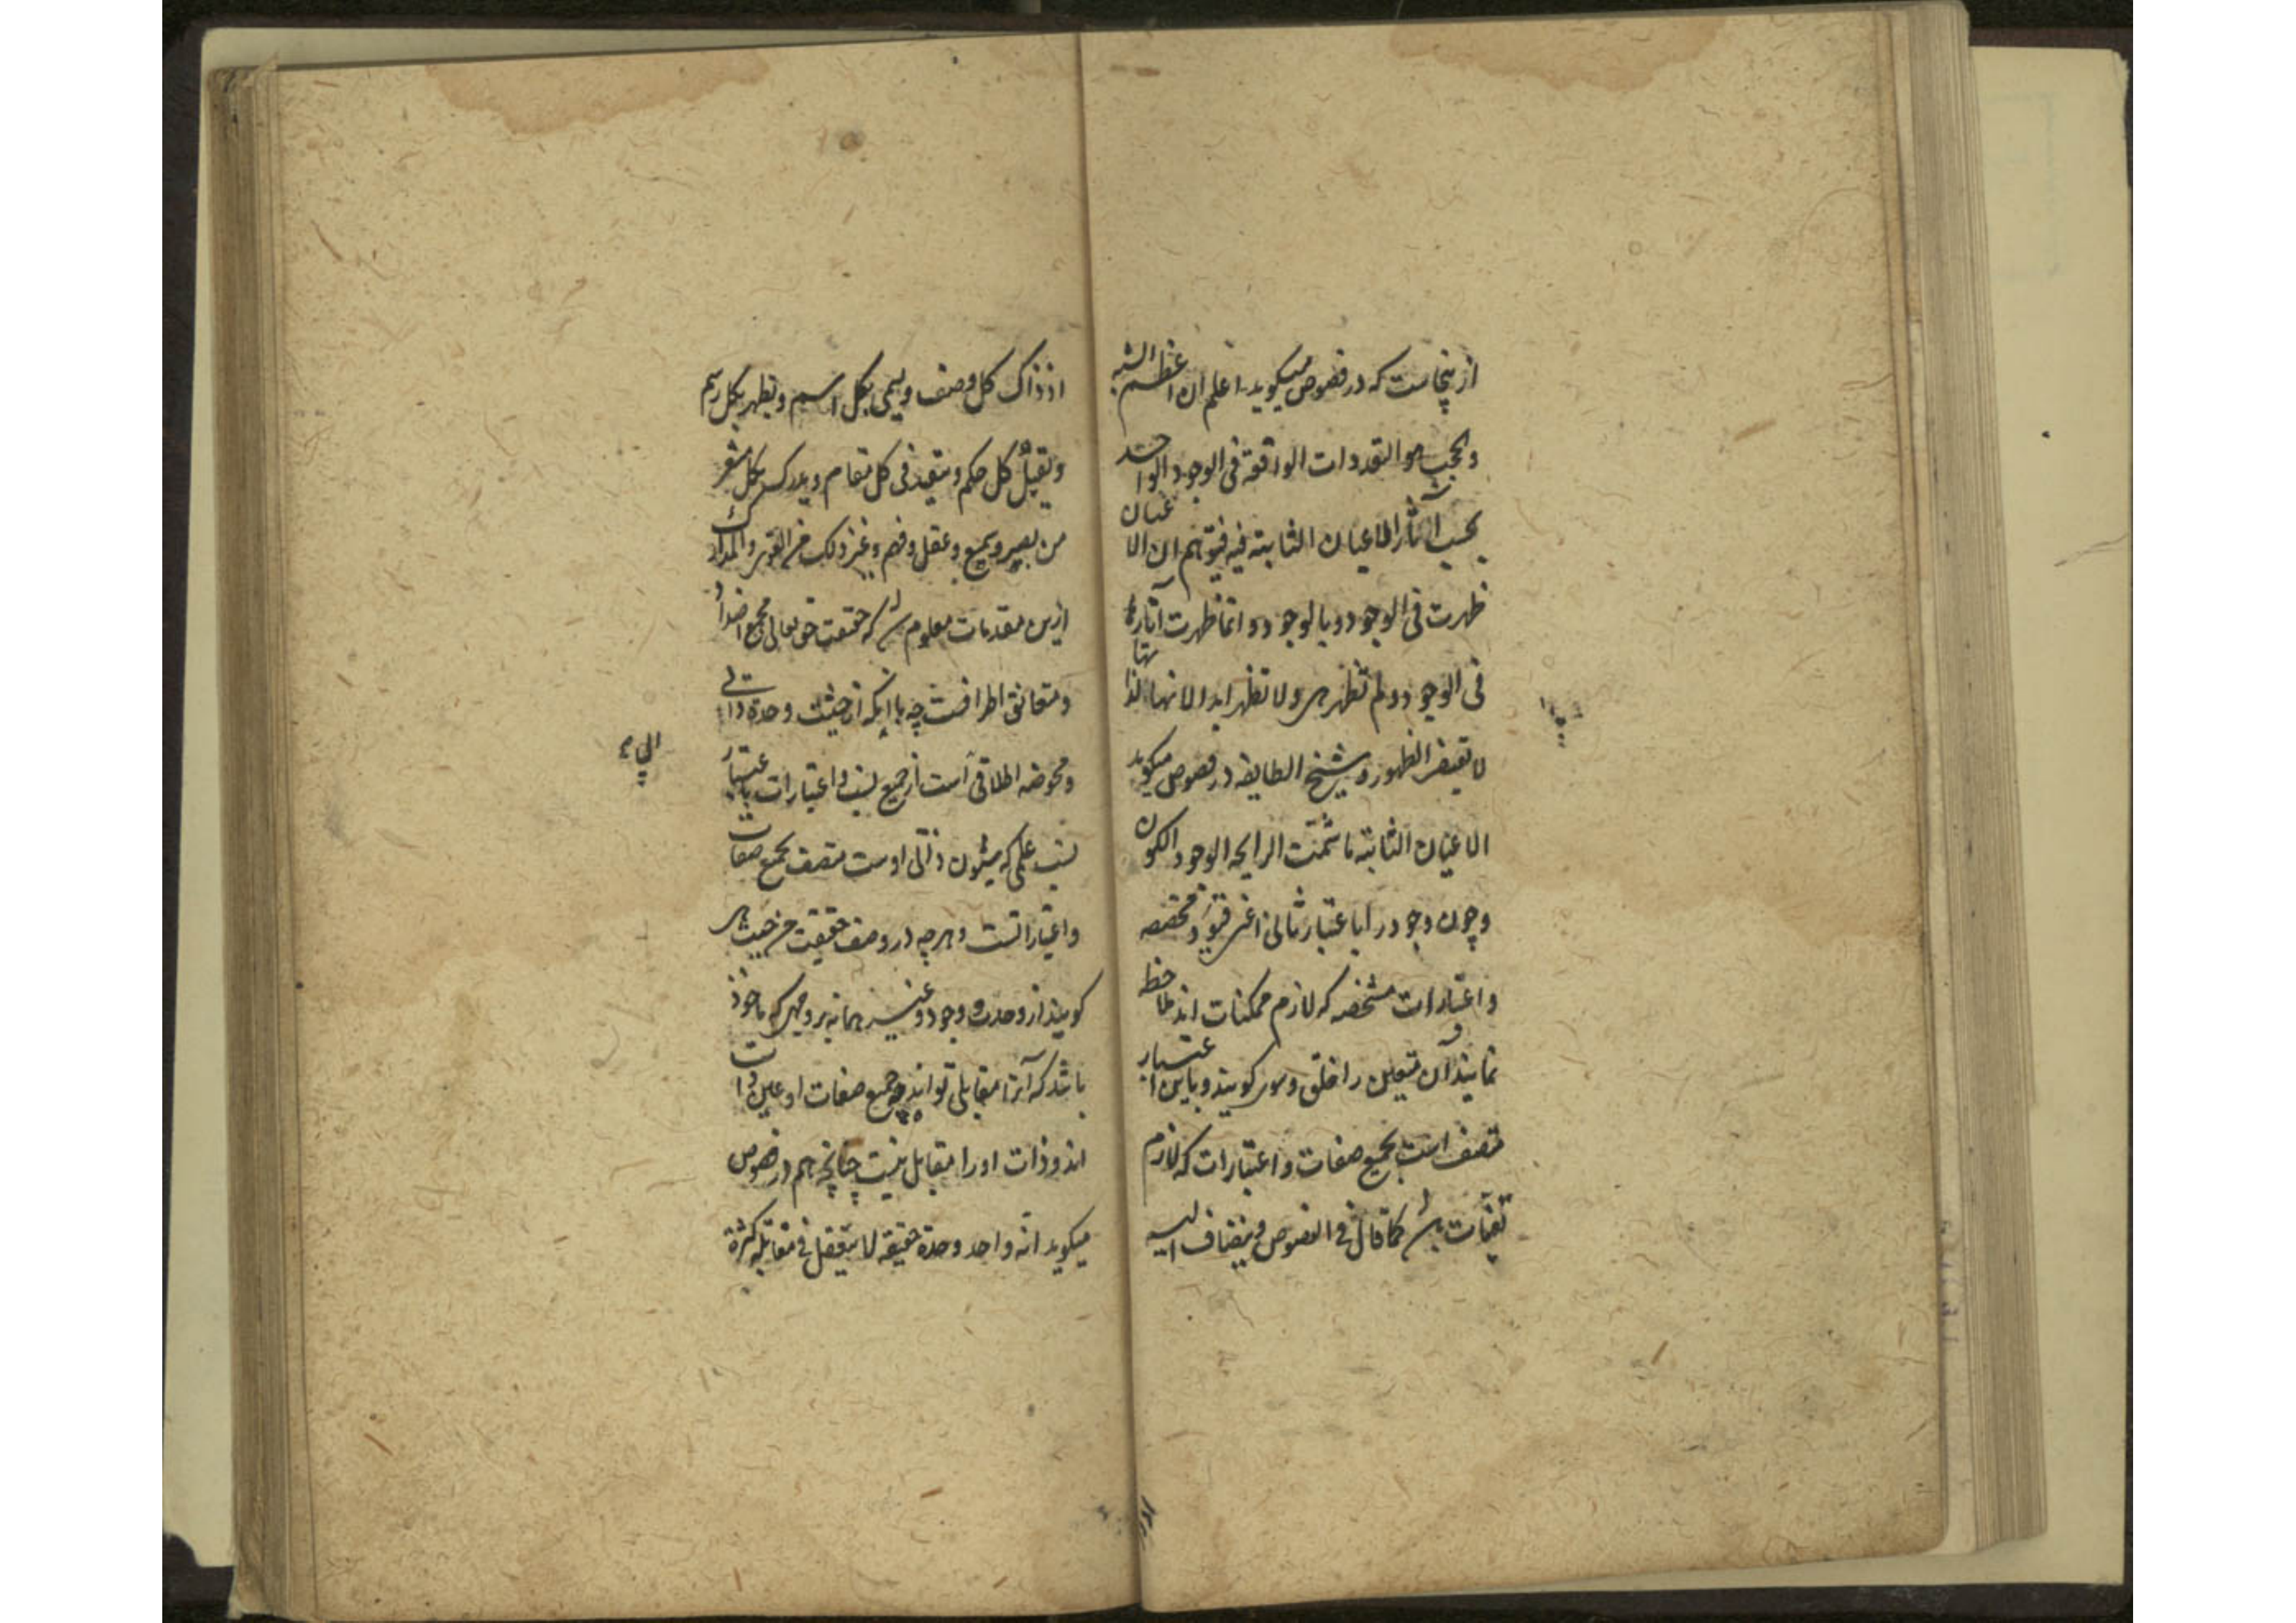 ازینجاست که در فصوص میگوید اعلم ان اعظم الشبه
والحجب هو التعددات الواقعة فی الوجود الواحد
بحسب آثار الاعیان الثابته فیه فیتوهم ان الاعیان
ظهرت فی الوجود وبالوجود وانما ظهرت آثارها
فی الوجود ولم تظهر هی ولا تظهر ابدا لانها لذاتها
لا تقتضی الظهور و شیخ الطایفه در فصوص میگوید
الاعیان الثابته ما شمّت الرایحه الوجود الکون
وچون وجود را باعتبار ثانی اعنی قیود مخصصه
واعتبارات مشخصه که لازم ممکنات اند ملاحظه
نمایند آن متعین را خلق و سوی گویند و باین اعتبار
متصف است بجمیع صفات و اعتبارات که لازم
تعینات باشد کما قال فی الفصوص ویضاف الیه
اذ ذاک کل وصف ویسمی بکل اسم ویظهر بکل رسم
ویقبل کل حکم ویتقید فی کل مقام ویدرک بکل مشعر
من بصر وسمع وعقل وفهم وغیر ذلک من القوی والمدارک
ازین مقدمات معلوم شد که حقیقت حق تعالی مجمع اضداد
ومتعانق اطرافست چه با آنکه از حیثیت وحدة ذاتی
ومحوضه اطلاقی است از جمیع نسب و اعتبارات باعتبار
نسب علمی که شئون ذاتی اوست متصف بجمیع صفات
واعتباراتست و هرچه در وصف حقیقت من حیث هی
گویند از وحدة و وجود و غیر هما نه بر وجهی که ماخوذ
باشد که آنرا مقابلی تواند بود چه جمیع صفات او عین ذات
اند و ذات او را مقابل نیست چنانچه هم در فصوص
میگوید انّه واحد وحدة حقیقة لا یتعقل فی مقابله کثرة